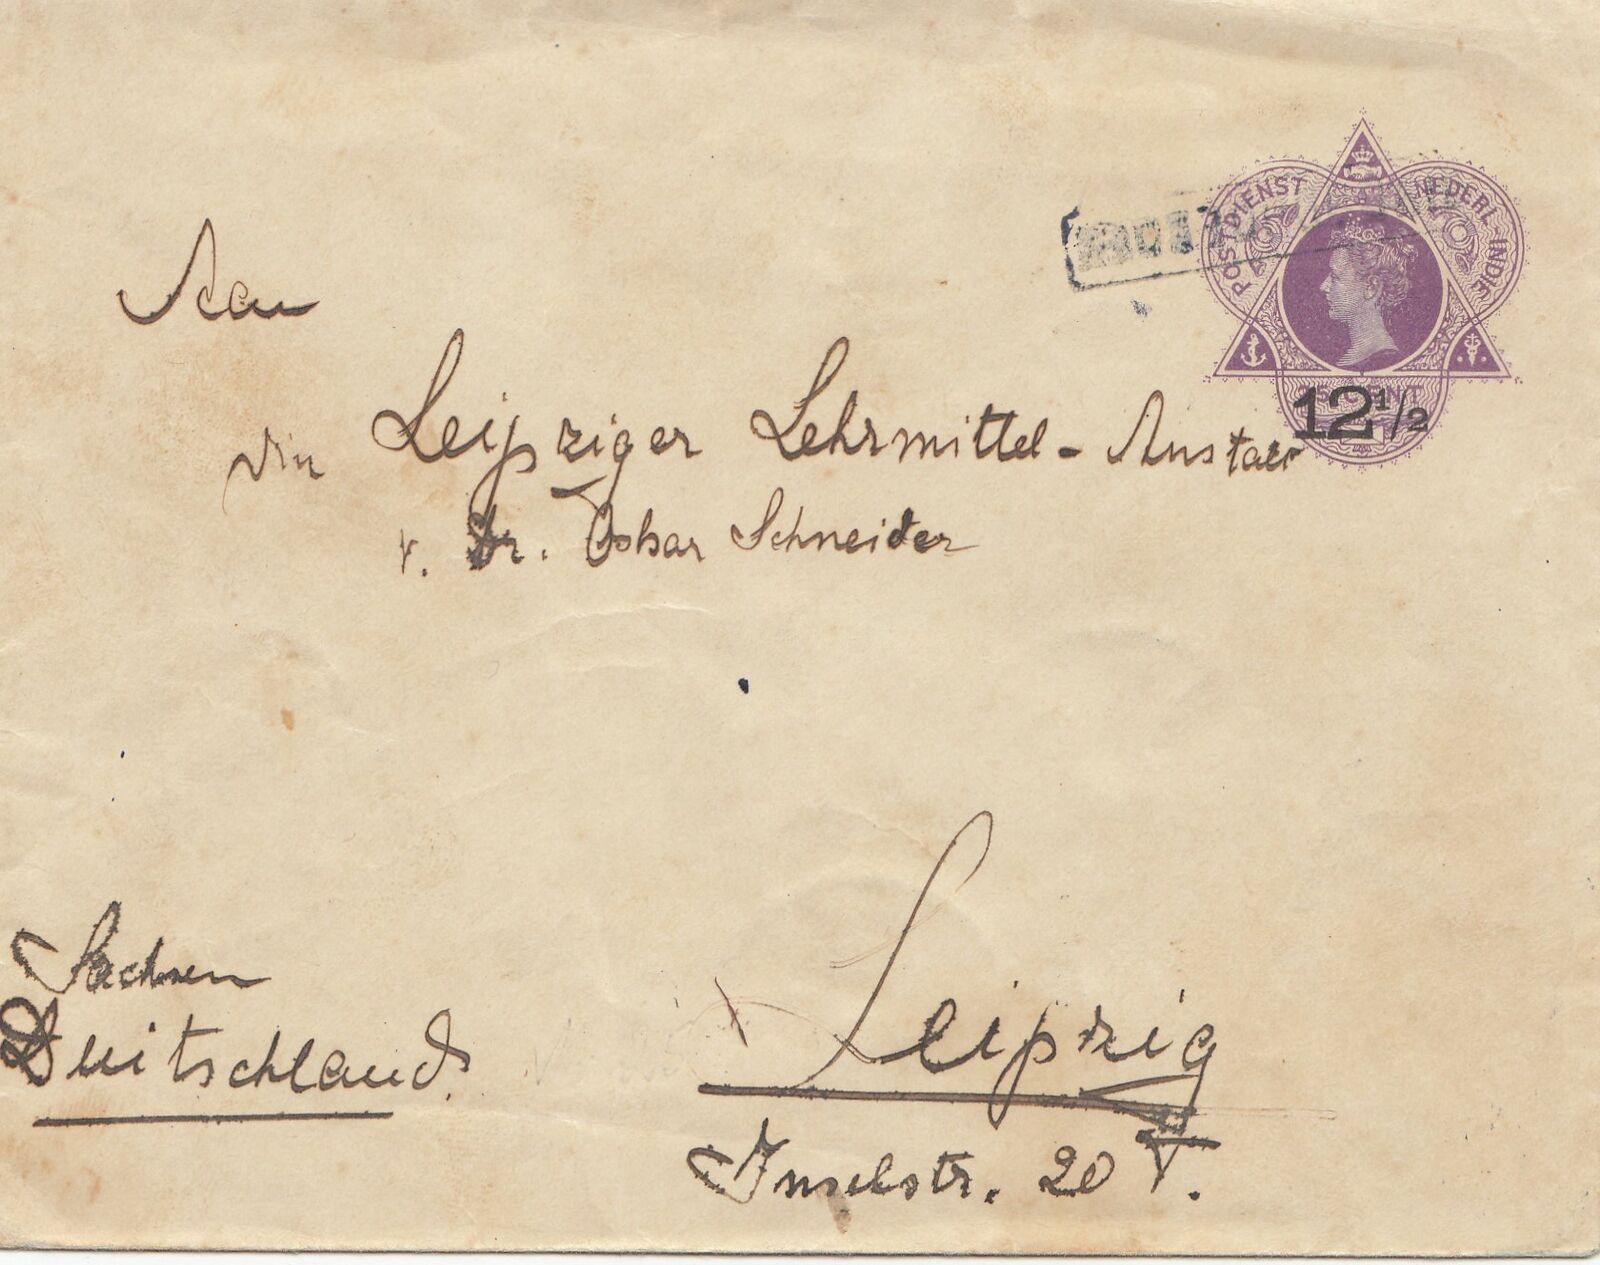 POSTDIENST NEDERL INDIE
12 1/2
CENT
An
die Leipziger Lehrmittel-Anstalt
v. Dr. Oskar Schneider
Leipzig
Inselstr. 20 I.
Sachsen
Deutschland.